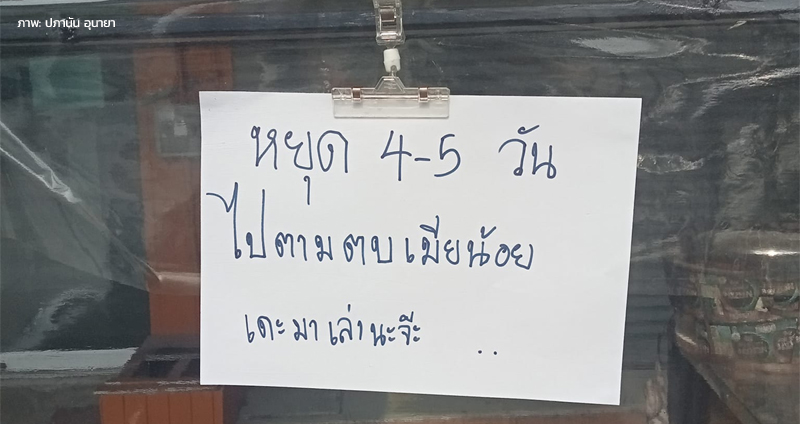 ภาพ: ปภานัน อุนายา
หยุด 4-5 วัน
ไปตามตบเมียน้อย
เดะมาเล่านะจ๊ะ ..